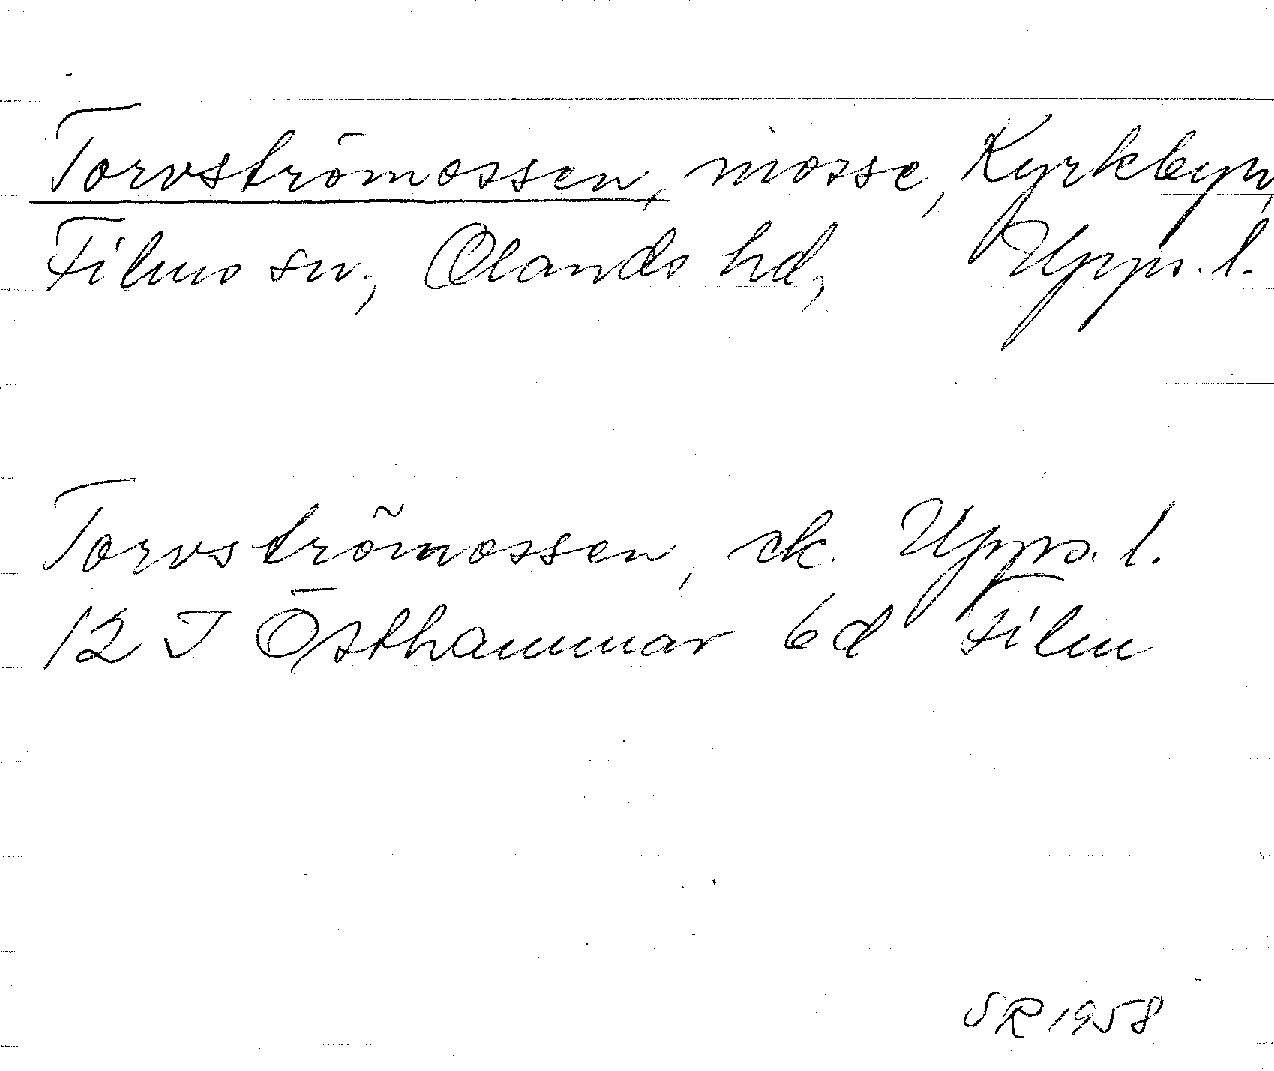 Torvströmossen, mosse, Kyrkbyn,
Films sn, Olands hd, Upps. l.
Torvströmossen, ek. Upps. l.
12 I Östhammar 6d Film
SR 1958